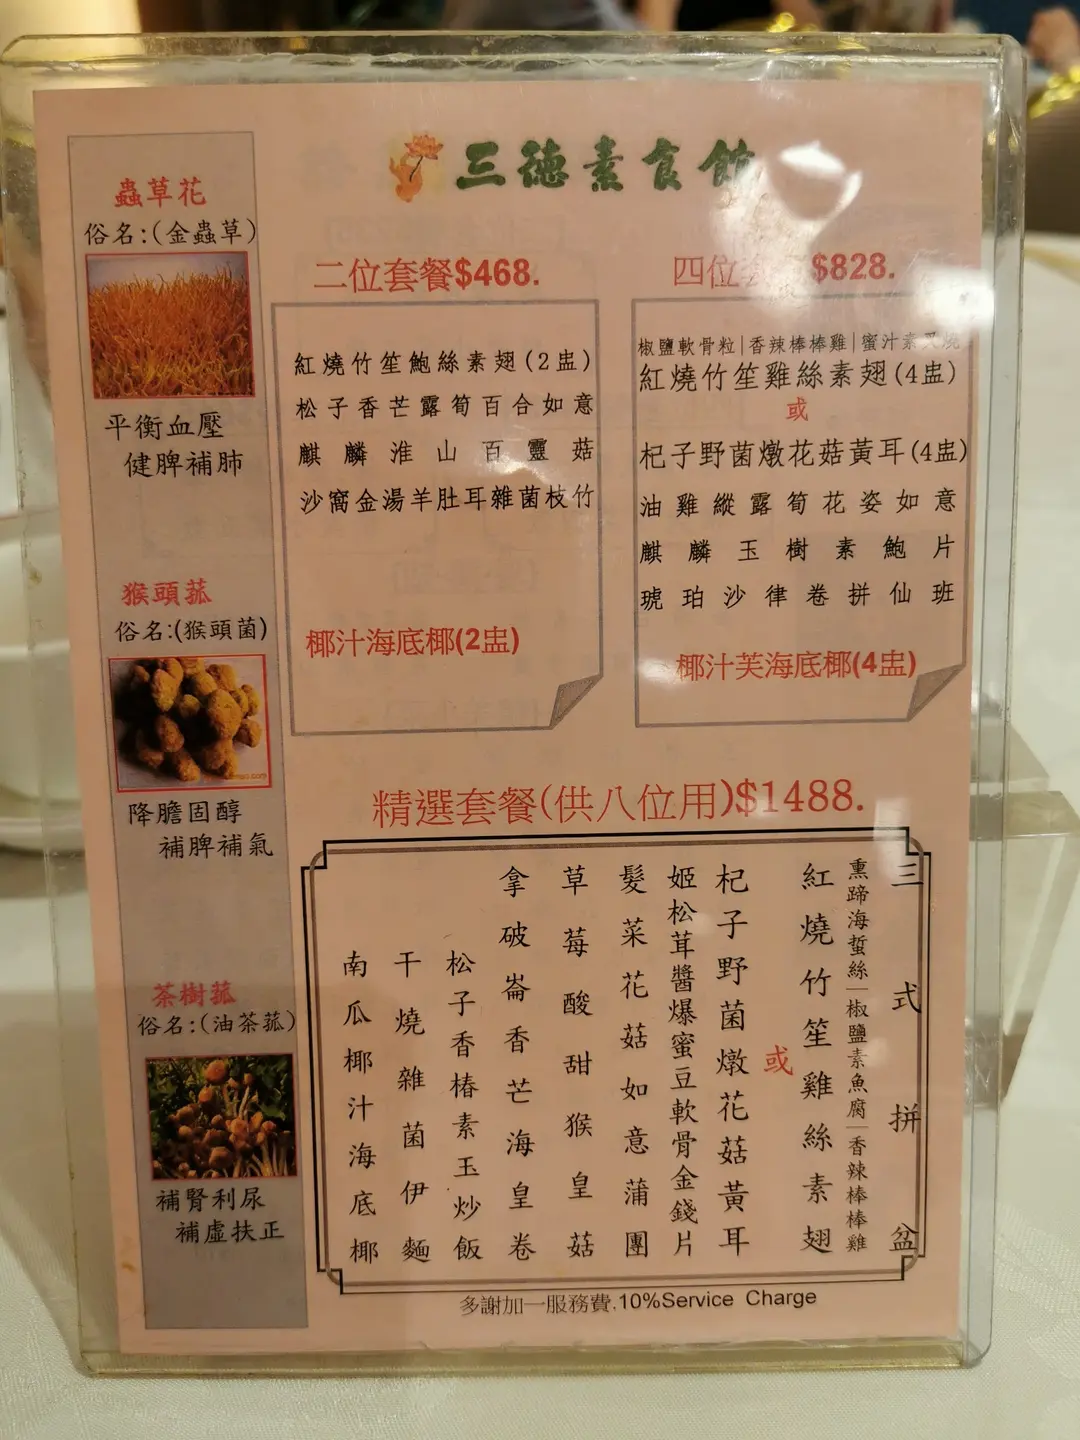 三德素食館
蟲草花
俗名:(金蟲草)
平衡血壓
健脾補肺
猴頭菰
俗名:(猴頭菌)
降膽固醇
補脾補氣
茶樹菰
俗名:(油茶菰)
補腎利尿
補虛扶正
二位套餐$468.
紅燒竹笙鮑絲素翅(2盅)
松子香芒露筍百合如意
麒麟淮山百靈菇
沙窩金湯羊肚耳雜菌枝竹
椰汁海底椰(2盅)
四位套 $828.
椒鹽軟骨粒|香辣棒棒雞|蜜汁素叉燒
紅燒竹笙雞絲素翅(4盅)
或
杞子野菌燉花菇黃耳(4盅)
油雞縱露筍花姿如意
麒麟玉樹素鮑片
琥珀沙律卷拼仙班
椰汁芙海底椰(4盅)
精選套餐(供八位用)$1488.
三式拼盆
熏蹄海蜇絲|椒鹽素魚腐|香辣棒棒雞
紅燒竹笙雞絲素翅
或
杞子野菌燉花菇黃耳
姬松茸醬爆蜜豆軟骨金錢片
髮菜花菇如意蒲團
草莓酸甜猴皇菇
拿破崙香芒海皇卷
松子香椿素玉炒飯
干燒雜菌伊麵
南瓜椰汁海底椰
多謝加一服務費.10%Service Charge